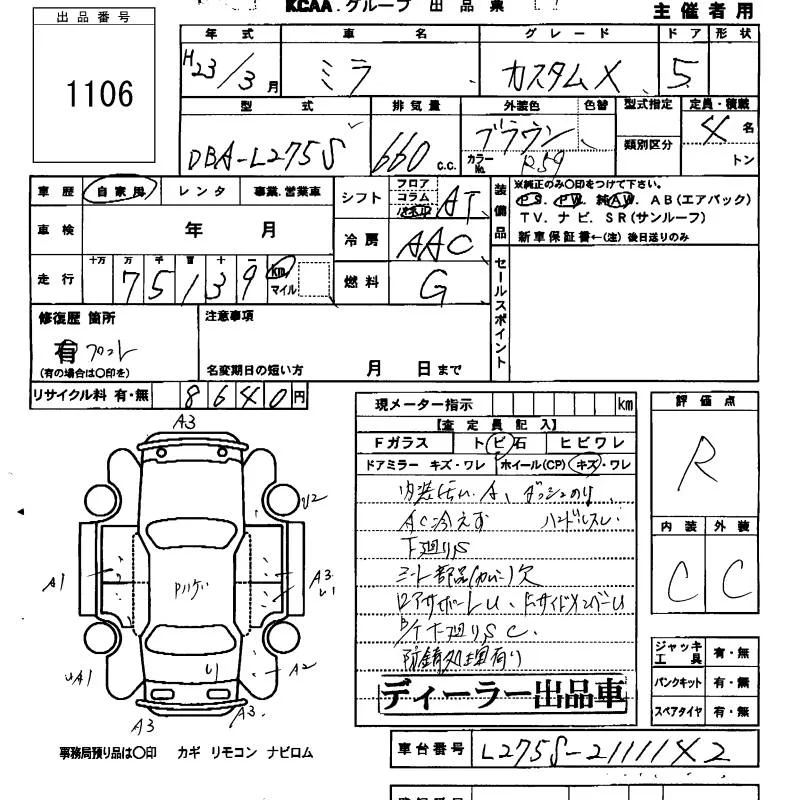 KCAA.グループ 出品票
主催者用
出品番号
1106
年式 車名 グレード ドア 形状
H23/3月 ミラ カスタムX 5
型式 排気量 外装色 色替 型式指定 定員・積載
DBA-L275S 660 c.c. ブラウン カラーNo. R59 類別区分 4名
トン
車歴 自家用 レンタ 事業.営業車
車検 年 月
走行 十万 万 千 百 十 一
75139 km マイル
シフト フロア コラム AT
冷房 AAC
燃料 G
装備品
※純正のみ〇印をつけて下さい。
PS. PW. 純AW. AB(エアバック)
TV. ナビ. SR(サンルーフ)
新車保証書←(注)後日送りのみ
セールスポイント
修復歴 箇所
有 フロント
(有の場合は〇印を)
注意事項
名変期日の短い方 月 日まで
リサイクル料 有・無 8640円
A3
U2
A1
A3
U1
Pルゲい
UA1
U1
A2
A3
A3
事務局預り品は〇印 カギ リモコン ナビロム
現メーター指示 km
【査定員記入】
Fガラス トビ石 ヒビワレ
ドアミラー キズ・ワレ ホイール(CP) キズ・ワレ
AC冷えず ハンドルスレ
下廻りS
シート部品(カバー)欠
防錆処理有り
ディーラー出品車
評価点
R
内装 外装
C C
ジャッキ工具 有・無
パンクキット 有・無
スペアタイヤ 有・無
車台番号 L275S-21111X2